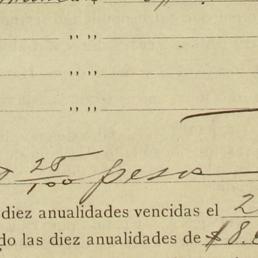 " "
" "
" "
25/100 pesos
diez anualidades vencidas el 2
do las diez anualidades de $8.